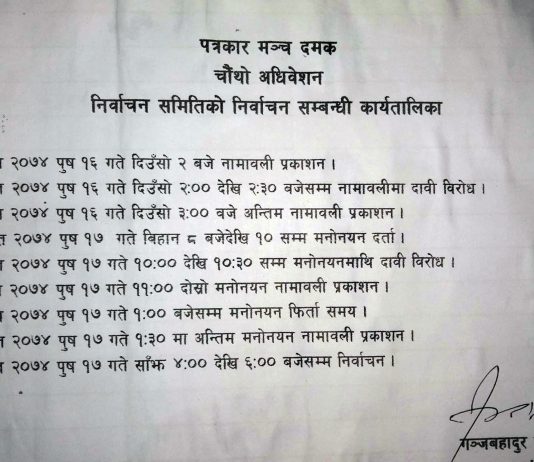 पत्रकार मञ्च दमक
चौंथो अधिवेशन
निर्वाचन समितिको निर्वाचन सम्बन्धी कार्यतालिका
२०७४ पुष १६ गते दिउँसो २ बजे नामावली प्रकाशन ।
२०७४ पुष १६ गते दिउँसो २:०० देखि २:३० बजेसम्म नामावलीमा दावी विरोध ।
२०७४ पुष १६ गते दिउँसो ३:०० वजे अन्तिम नामावली प्रकाशन ।
२०७४ पुष १७ गते बिहान ८ बजेदेखि १० सम्म मनोनयन दर्ता ।
२०७४ पुष १७ गते १०:०० देखि १०:३० सम्म मनोनयनमाथि दावी विरोध ।
२०७४ पुष १७ गते ११:०० दोस्रो मनोनयन नामावली प्रकाशन ।
२०७४ पुष १७ गते १:०० बजेसम्म मनोनयन फिर्ता समय ।
२०७४ पुष १७ गते १:३० मा अन्तिम मनोनयन नामावली प्रकाशन ।
२०७४ पुष १७ गते साँझ ४:०० देखि ६:०० बजेसम्म निर्वाचन ।
गञ्जबहादुर